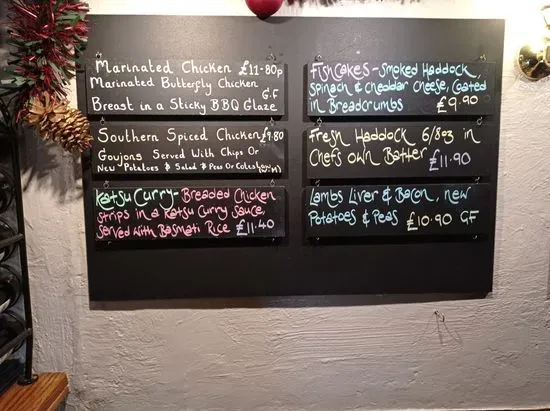 Marinated Chicken £11-80p
Marinated Butterfly Chicken
G.F
Breast in a Sticky BBQ Glaze
Southern Spiced Chicken £9.80
Goujons Served With Chips Or
New Potatoes & Salad & Peas Or Coleslaw
Katsu Curry - Breaded Chicken
strips in a Katsu Curry sauce,
served with Basmati Rice £11.40
Fishcakes - Smoked Haddock,
spinach & cheddar cheese, coated
in Breadcrumbs £9.90
Fresh Haddock 6/8oz in
Chefs own Batter £11.90
Lambs Liver & Bacon, new
Potatoes & Peas £10.90 G.F